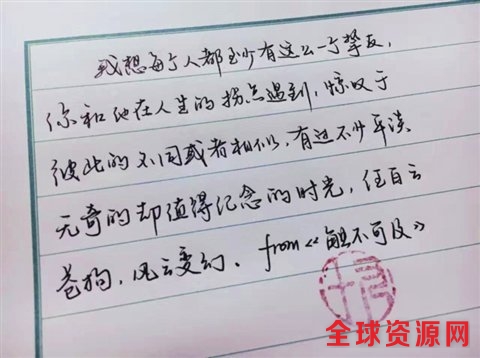 我想每个人都至少有这么一个挚友，
你和他在人生的拐点遇到，惊叹于
彼此的不同或者相似，有过不少平淡
无奇的却值得纪念的时光，任白云
苍狗，风云变幻。from《触不可及》
全球资源网